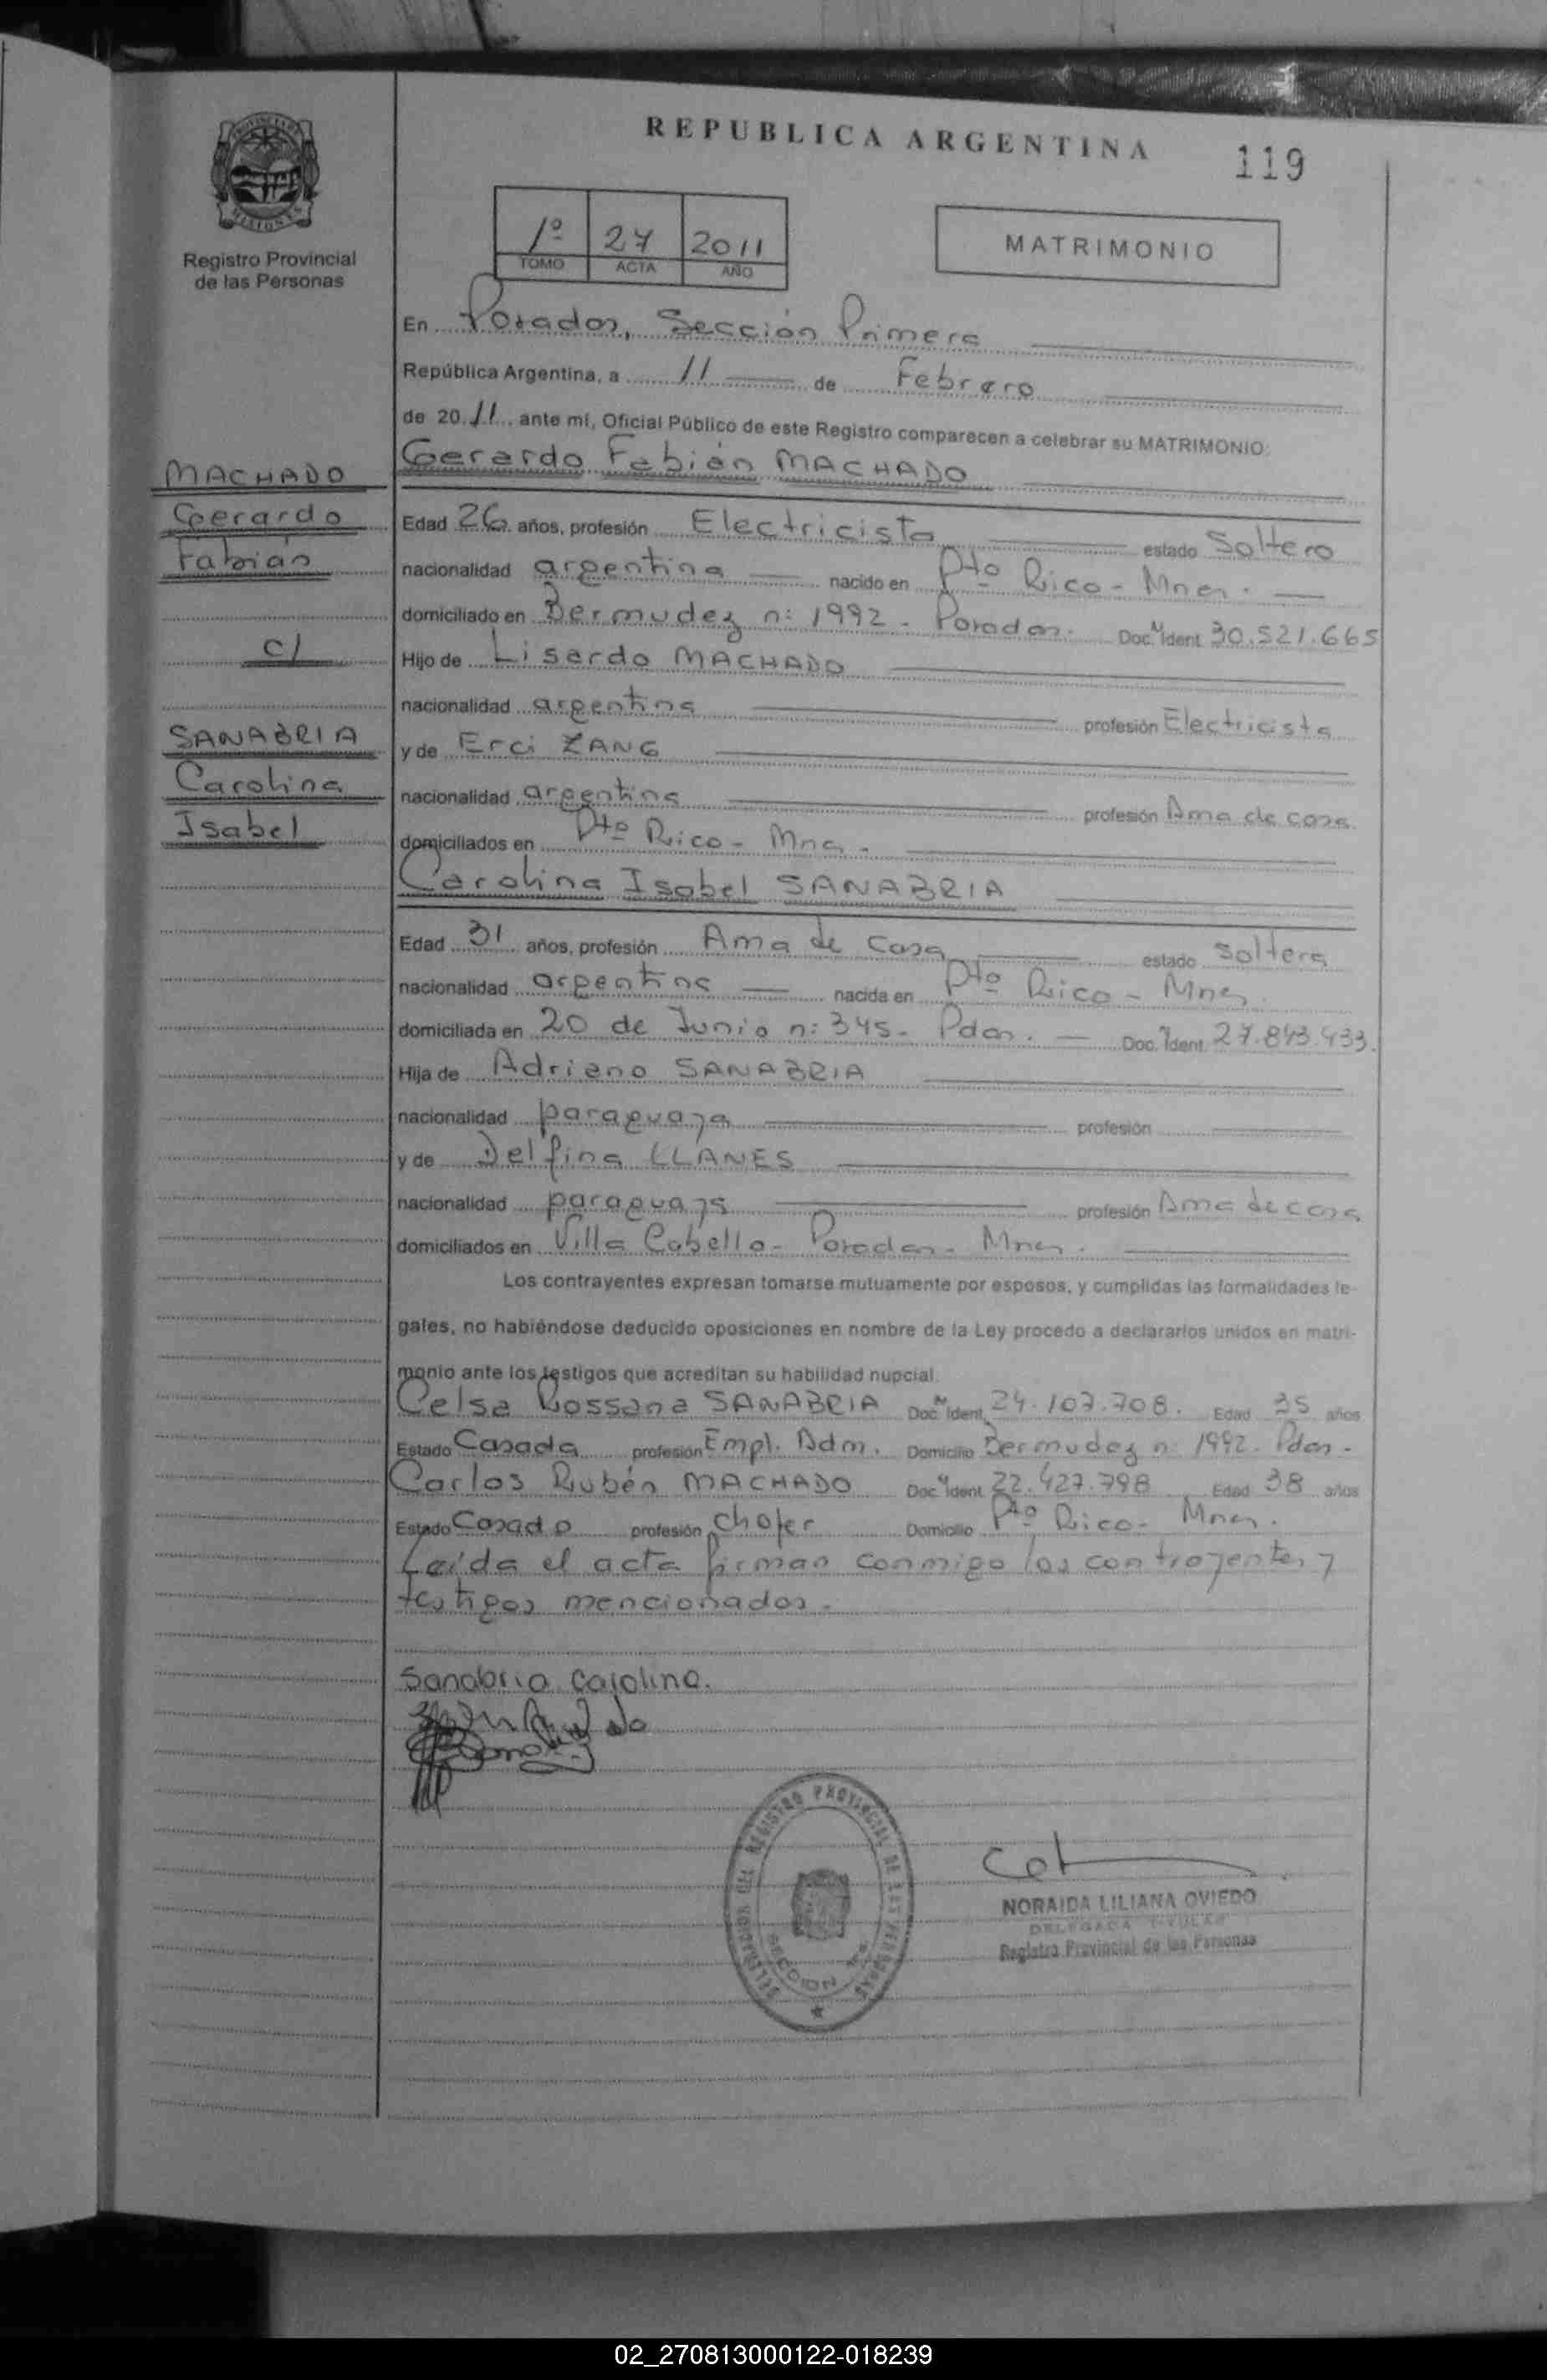 REPUBLICA ARGENTINA
119
PROVINCIA DE MISIONES
Registro Provincial
de las Personas
1º 27 2011
TOMO ACTA AÑO
MATRIMONIO
En Posadas, Sección Primera
República Argentina, a 11 de Febrero
de 2011, ante mí, Oficial Público de este Registro comparecen a celebrar su MATRIMONIO:
Gerardo Fabián MACHADO
MACHADO
Gerardo
Fabián
c/
SANABRIA
Carolina
Isabel
Edad 26 años, profesión Electricista estado Soltero
nacionalidad argentina nacido en Pto Rico - Mnes.
domiciliado en Bermudez n: 1992 - Posadas. Doc. N Ident. 30.521.665
Hijo de Lisardo MACHADO
nacionalidad argentina profesión Electricista
y de Erci ZANG
nacionalidad argentina profesión Ama de casa
domiciliados en Pto Rico - Mnes.
Carolina Isabel SANABRIA
Edad 31 años, profesión Ama de casa estado soltera
nacionalidad argentina nacida en Pto Rico - Mnes.
domiciliada en 20 de Junio n: 345 - Pdas. Doc. N Ident. 27.843.433.
Hija de Adriano SANABRIA
nacionalidad paraguaya profesión
y de Delfina LLANES
nacionalidad paraguaya profesión Ama de casa
domiciliados en Villa Cabello - Posadas - Mnes.
Los contrayentes expresan tomarse mutuamente por esposos, y cumplidas las formalidades le-
gales, no habiéndose deducido oposiciones en nombre de la Ley procedo a declararlos unidos en matri-
monio ante los testigos que acreditan su habilidad nupcial.
Celsa Rossana SANABRIA Doc. N Ident. 24.107.708. Edad 35 años
Estado Casada profesión Empl. Adm. Domicilio Bermudez n: 1992. Pdas.
Carlos Rubén MACHADO Doc. N Ident. 22.427.798 Edad 38 años
Estado Casado profesión chofer Domicilio Pto Rico - Mnes.
Leída el acta firman conmigo los contrayentes y
testigos mencionados.
Sanabria Carolina.
DELEGACION DEL REGISTRO PROVINCIAL DE LAS PERSONAS
SECCION
NORAIDA LILIANA OVIEDO
DELEGADA TITULAR
Registro Provincial de las Personas
02_270813000122-018239